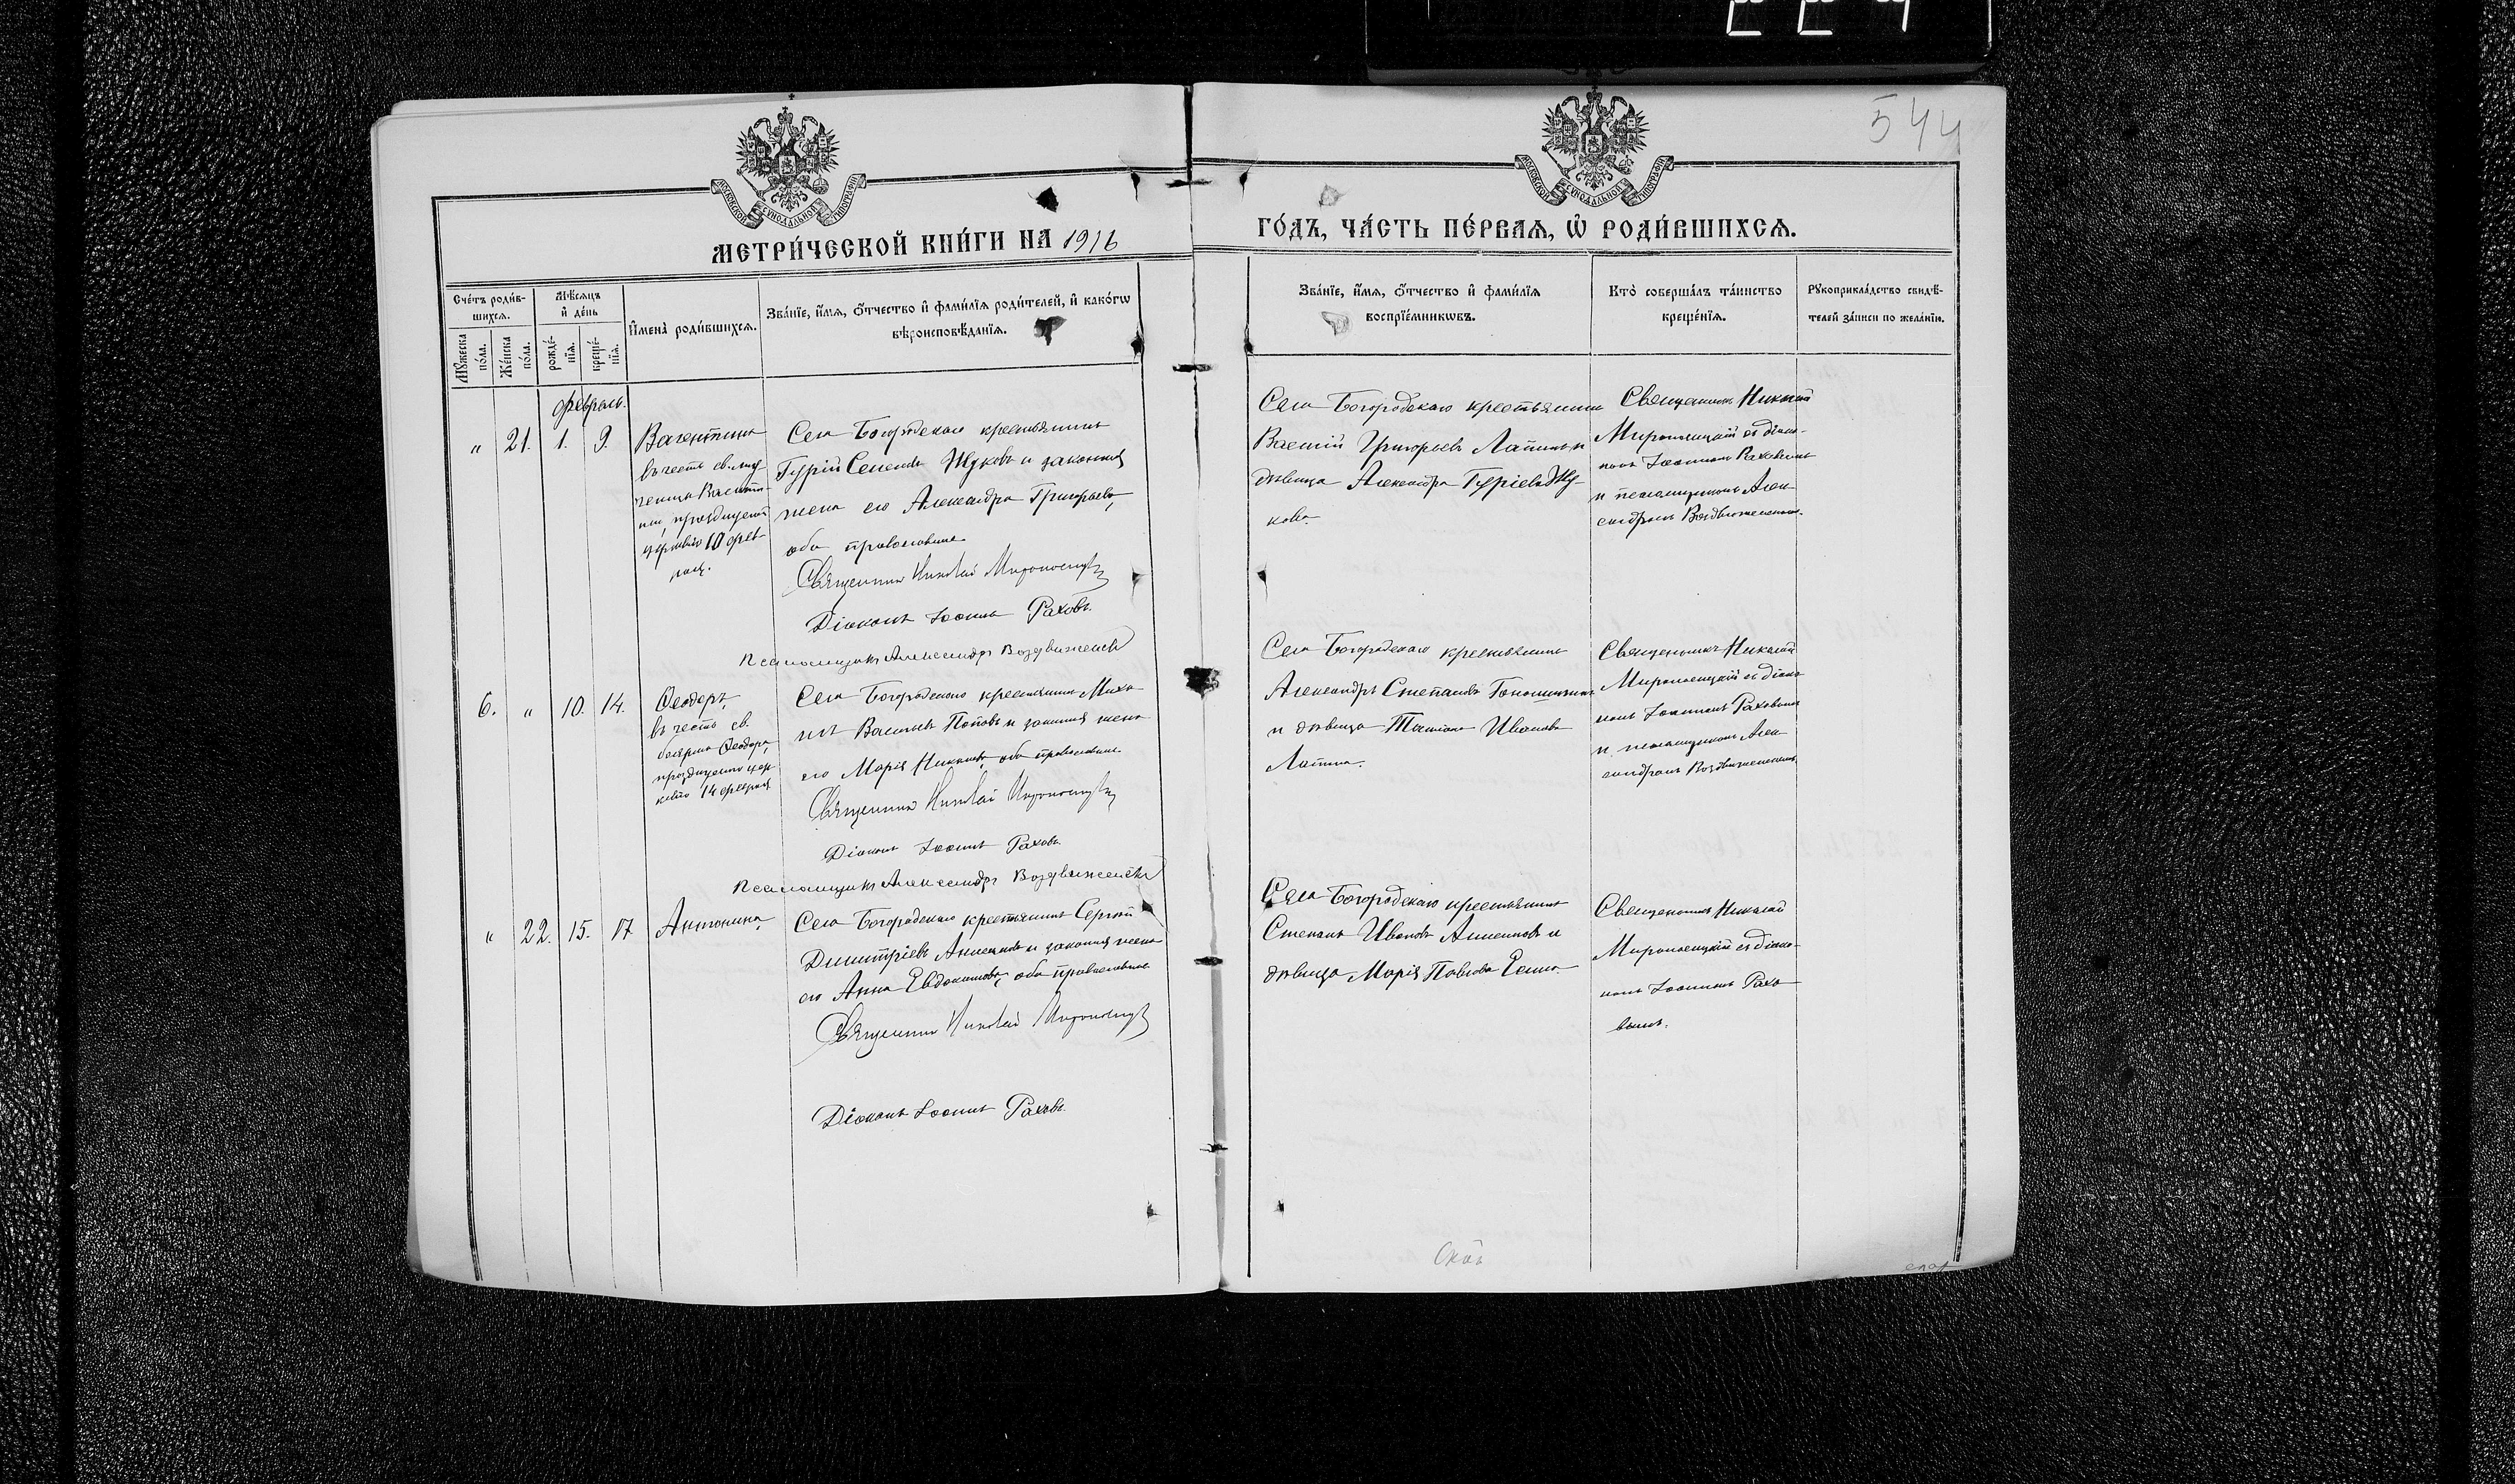 544
МОСКОВСКОЙ СѴНОДАЛЬНОЙ ТИПОГРАФІИ
МОСКОВСКОЙ СѴНОДАЛЬНОЙ ТИПОГРАФІИ
МЕТРИ́ЧЕСКОЙ КНИ́ГИ НА 1916
ГО́ДЪ, ЧА́СТЬ ПЕ́РВАѦ, Ѽ РОДИ́ВШИХСѦ.
Сче́тъ роди́в-
шихсѧ.
Мꙋ́жеска
по́ла.
Же́нска
по́ла.
Мѣ́сѧцъ
и҆ де́нь
рожде́-
нїѧ.
креще́-
нїѧ.
И҆мена̀ роди́вшихсѧ.
Зва́нїе, и҆́мѧ, ѻ҆́тчество и҆ фами́лїѧ роди́телей, и҆ како́гѡ
вѣроисповѣ́данїѧ.
Зва́нїе, и҆́мѧ, ѻ҆́тчество и҆ фами́лїѧ
воспрїе́мникѡвъ.
Кто̀ соверша́лъ та́инство
креще́нїѧ.
Рꙋкоприкла́дство свидѣ́-
телей за́писи по жела́нїю.
Февраль.
" 21. 1. 9.
Валентина
въ честь св. му-
ченицы Валенти-
ны, празднуемой
церковію 10 фев-
раля.
Села Богородскаго крестьянинъ
Гурій Семеновъ Жуковъ и законная
жена его Александра Григорьева,
оба православные
Священникъ Николай Мироносицкій
Діаконъ Іоаннъ Раховъ.
Псаломщикъ Александръ Воздвиженскій
Села Богородскаго крестьянинъ
Василій Григорьевъ Лапинъ и
дѣвица Александра Гуріева Жу-
кова.
Священникъ Николай
Мироносицкій съ діако-
номъ Іоанномъ Раховымъ
и псаломщикомъ Алек-
сандромъ Воздвиженскимъ.
6. " 10. 14.
Ѳеодоръ,
въ честь св.
Ѳеодора,
празднуемаго цер-
ковію 14 февраля
Села Богородскаго крестьянинъ Миха-
илъ Васильевъ Поповъ и законная жена
его Марія оба православные
Священникъ Николай Мироносицкій
Діаконъ Іоаннъ Раховъ
Псаломщикъ Александръ Воздвиженскій
Села Богородскаго крестьянинъ
Александръ Степановъ
и дѣвица Татіана Иванова
Лапина.
Священникъ Николай
Мироносицкій съ діако-
номъ Іоанномъ Раховымъ
и псаломщикомъ Алек-
сандромъ Воздвиженскимъ
" 22. 15. 17
Антонина
Села Богородскаго крестьянинъ Сергій
Димитріевъ Анненковъ и законная жена
его Анна Евдокимова, оба православные
Священникъ Николай Мироносицкій
Діаконъ Іоаннъ Раховъ.
Села Богородскаго крестьянинъ
Степанъ Ивановъ Анненковъ и
дѣвица Марія Павлова
Священникъ Николай
Мироносицкій съ діако-
номъ Іоанномъ Рахо-
вымъ.